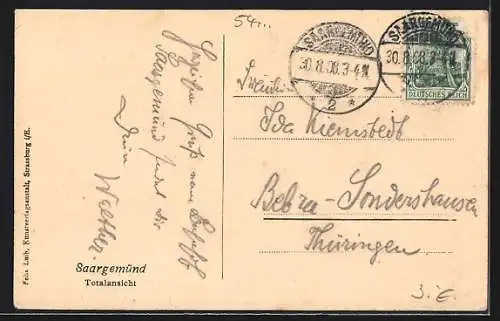 54...
Herzliche Gruß vom
Saargemünd sendet Dir
Dein Walther.
Saargemünd
Totalansicht
Felix Luib, Kunstverlagsanstalt, Strassburg i/E.
SAARGEMÜND
30.8.08.3-4N.
* 2 *
SAARGEMÜND
30.8.08.3-4N.
DEUTSCHES REICH
Fräulein
Ida Kiemstedt
Bebra-Sondershausen
Thüringen.